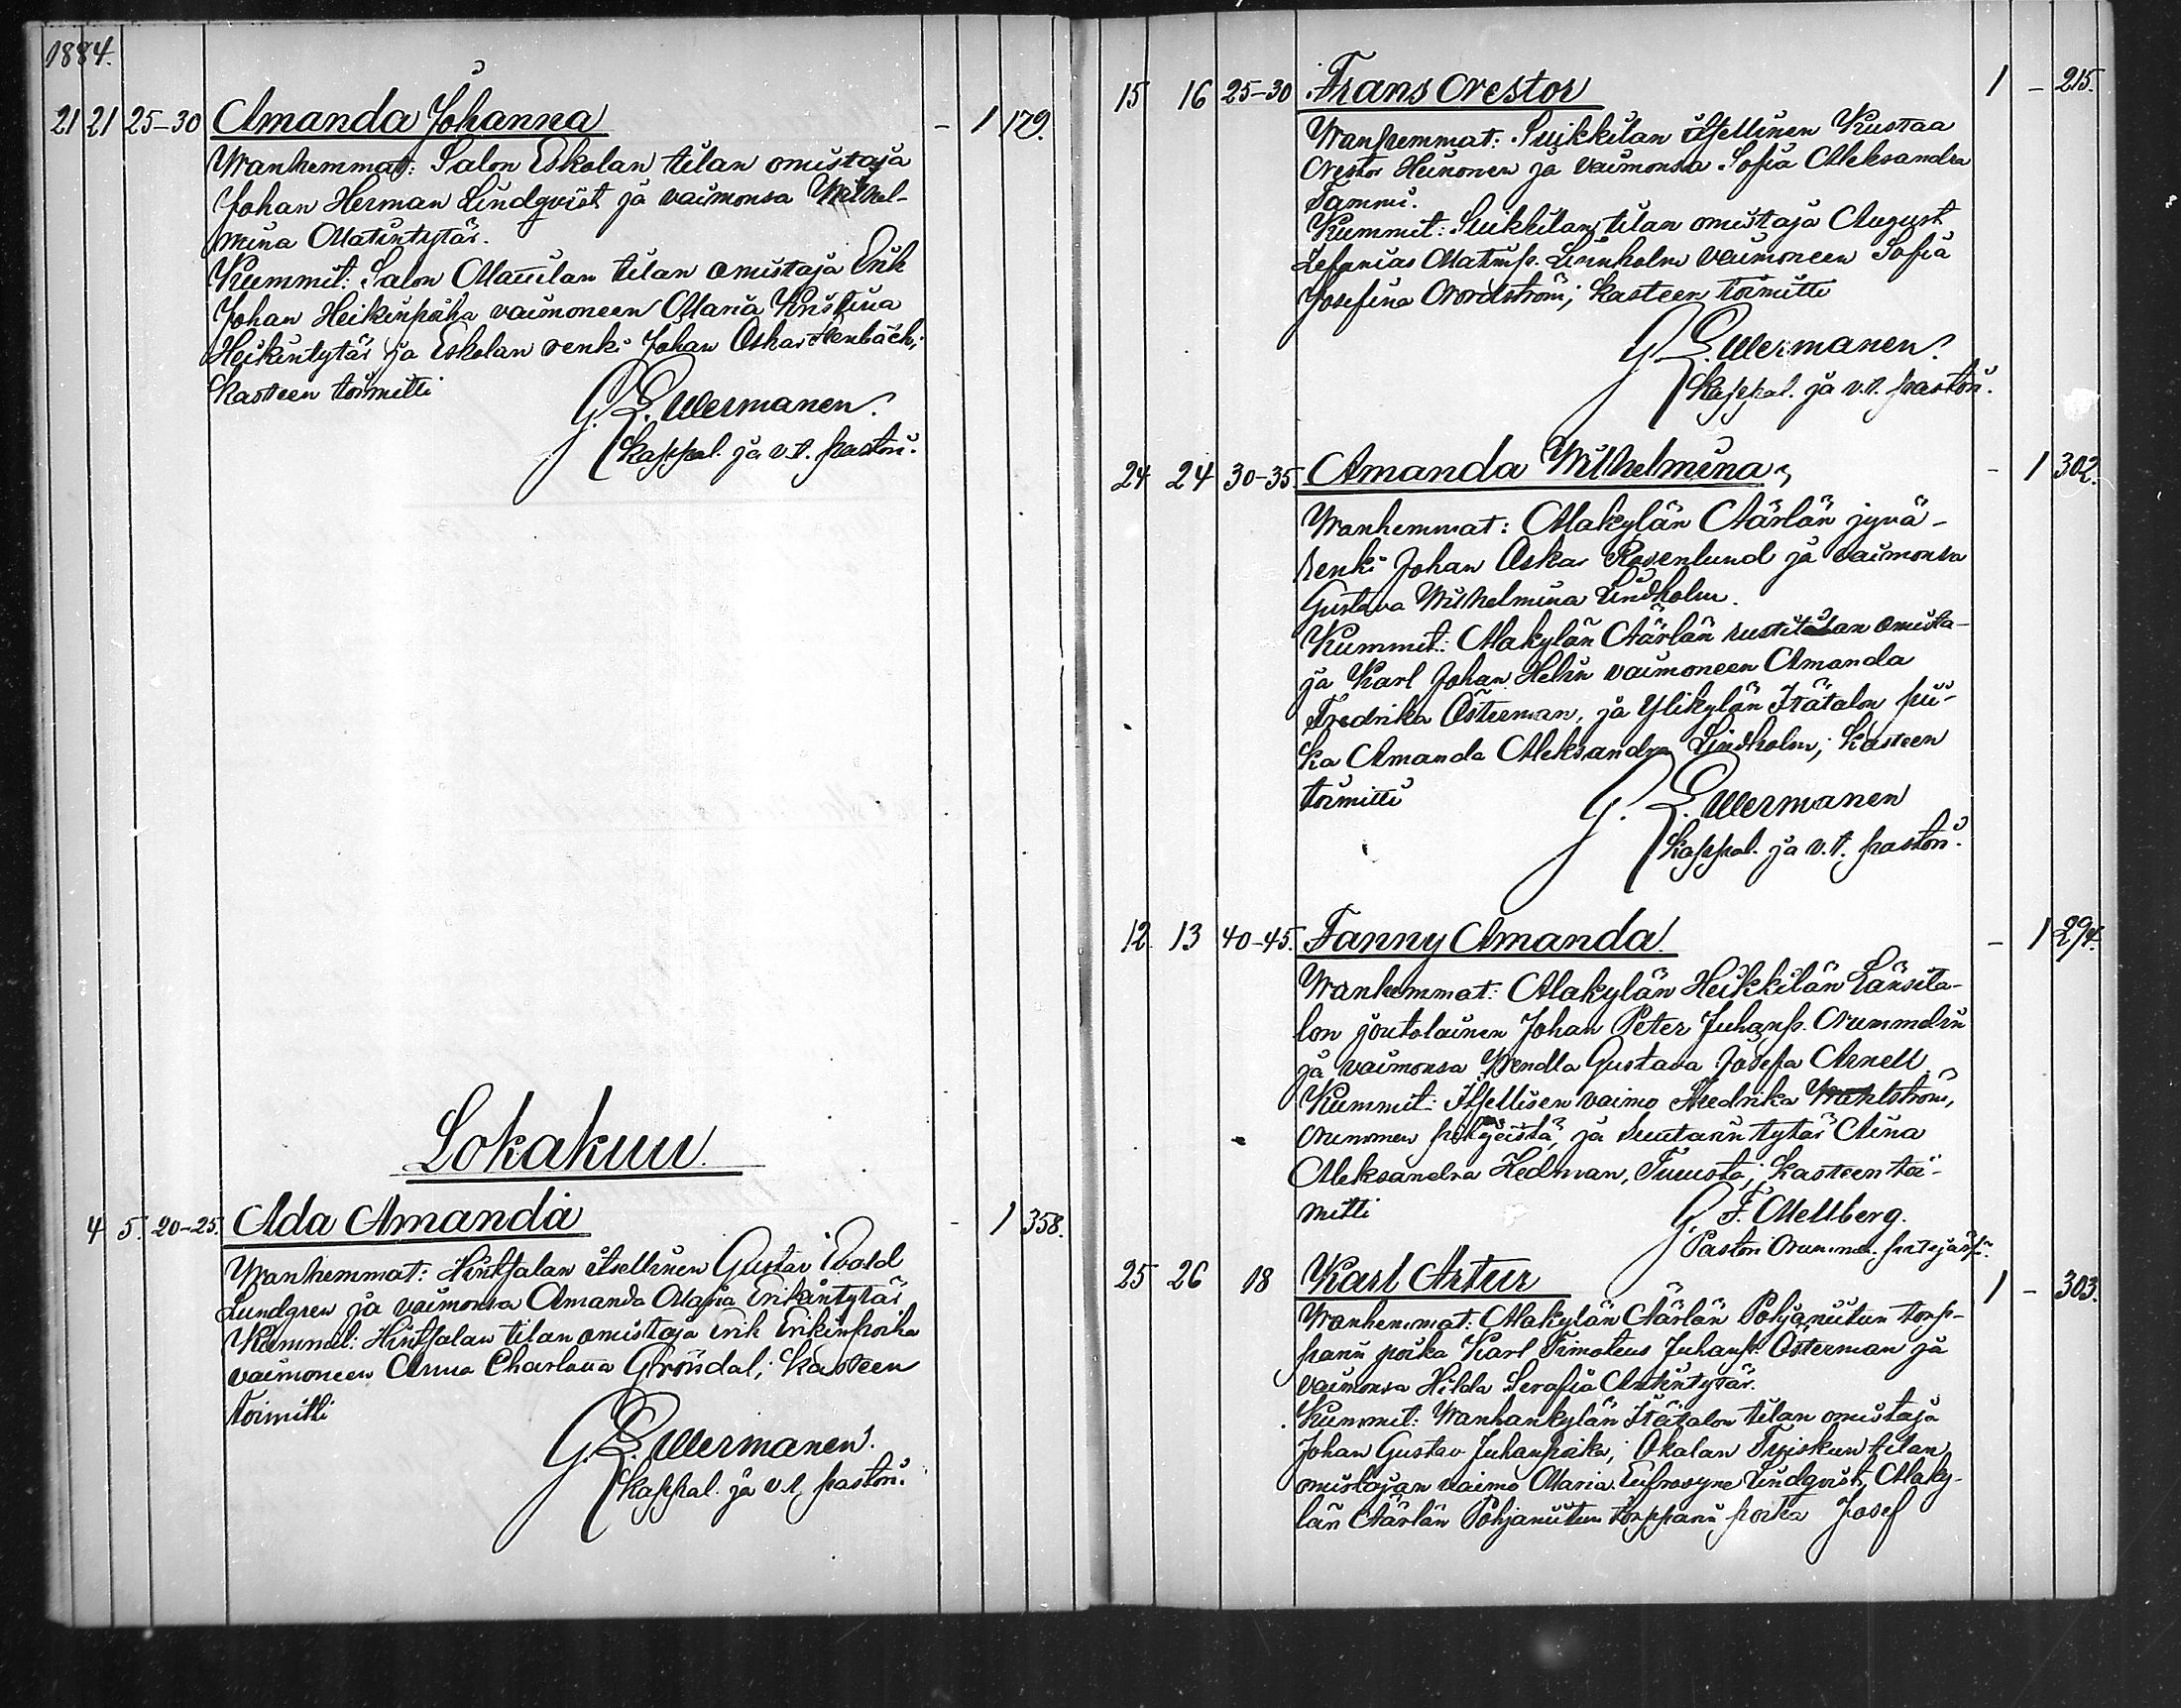 1884.
21 21 25-30 Amanda Johanna - 1 179.
Wanhemmat: Salon Eskolan tilan omistaja
Johan Herman Lindqvist ja vaimonsa Wilhel-
mina Matintytär.
Kummit: Salon Mattilan tilan omistaja Erik
Johan Heikinpoika vaimoneen Maria Kristina
Heikintytär ja Eskolan renki Johan Oskar Stenbäck;
Kasteen toimitti
G. E. Wermanen.
Kappal. ja v.t. pastori.
Lokakuu.
4 5. 20-25. Ada Amanda - 1 358.
Wanhemmat: Hintsalan itsellinen Gustav Evald
Lundgren ja vaimonsa Amanda Maria Erikintytär
Kummit: Hintsalan tilan omistaja Erik Erikinpoika
vaimoneen Anna Charlotta Gröndal; Kasteen
toimitti
G. E. Wermanen.
Kappal. ja v.t. pastori.
15 16 25-30 Frans Nestor 1 - 215.
Wanhemmat: Suikkilan itsellinen Kustaa
Nestor Heinonen ja vaimonsa Sofia Aleksandra
Tammi.
Kummit: Suikkilan tilan omistaja August
Sefanias Matinp. Linnholm vaimoneen Sofia
Josefina Nordström; Kasteen toimitti
G. E. Wermanen.
Kappal. ja v.t. pastori.
24 24 30-35. Amanda Wilhelmina - 1 302.
Wanhemmat: Alakylän Äärlän jyvä-
renki Johan Oskar Rosenlund ja vaimonsa
Gustava Wilhelmina Lindholm.
Kummit: Alakylän Äärlän rustitilan omista-
ja Karl Johan Helin vaimoneen Amanda
Fredrika Österman, ja Ylikylän Itätalon pii-
ka Amanda Aleksandra Lindholm; Kasteen
toimitti
G. E. Wermanen
Kappal. ja v.t. pastori.
12 13 40-45. Fanny Amanda. - 1 294.
Wanhemmat: Alakylän Heikkilän Länsita-
lon joutolainen Johan Peter Juhanp. Nummelin
ja vaimonsa Wendla Gustava Josefa Arnell.
Kummit: Itsellisen vaimo Fredrika Wahlström,
Nummen pitäjästä, ja suutarin tytär Aina
Aleksandra Hedman, Turusta; Kasteen toi-
mitti
G. F. Mellberg.
Pastori Nummen pitäjäs.
25 26 18 Karl Artur 1 - 303.
Wanhemmat: Alakylän Äärlän Pohjaniitun torp-
parin poika Karl Timoteus Juhanp. Österman ja
vaimonsa Hilda Serafia Antintytär.
Kummit: Wanhankylän Itätalon tilan omistaja
Johan Gustav Juhanpoika; Tyiskun tilan
omistajan vaimo Maria Eufrosyne Lindqvist, Alaky-
län Äärlän Pohjaniitun torpparin poika Josef